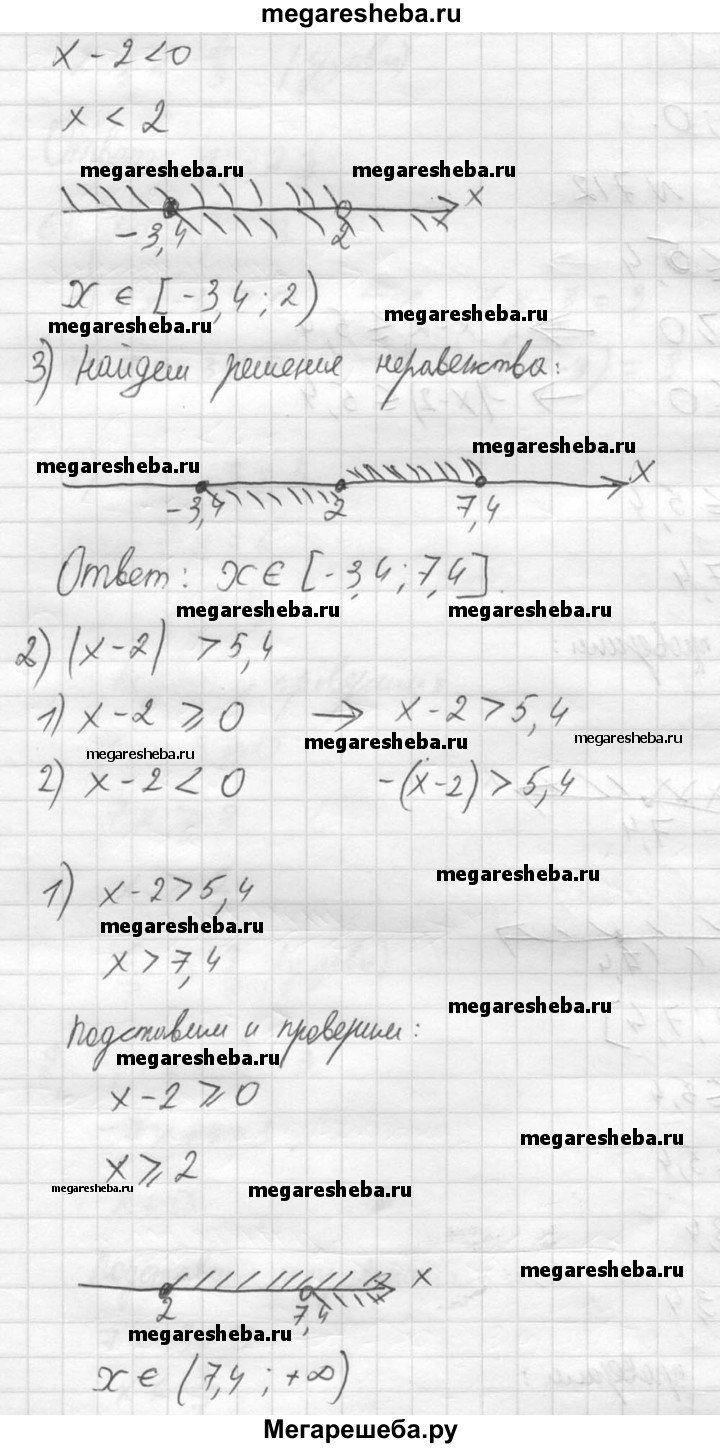 megaresheba.ru
x - 2 < 0
x < 2
megaresheba.ru megaresheba.ru
x
-3,4 2
x ∈ [-3,4 ; 2)
megaresheba.ru megaresheba.ru
3) Найдем решение неравенства:
megaresheba.ru megaresheba.ru
x
-3,4 2 7,4
Ответ: x ∈ [-3,4 ; 7,4].
megaresheba.ru megaresheba.ru
2) |x-2| > 5,4
1) x - 2 ⩾ 0 → x - 2 > 5,4
megaresheba.ru megaresheba.ru megaresheba.ru
2) x - 2 < 0 -(x-2) > 5,4
megaresheba.ru
1) x - 2 > 5,4
megaresheba.ru
x > 7,4
megaresheba.ru
Подставим и проверим:
megaresheba.ru
x - 2 ⩾ 0
megaresheba.ru
x ⩾ 2
megaresheba.ru megaresheba.ru
megaresheba.ru
x
2 7,4
megaresheba.ru
x ∈ (7,4 ; +∞)
Мегарешеба.ру